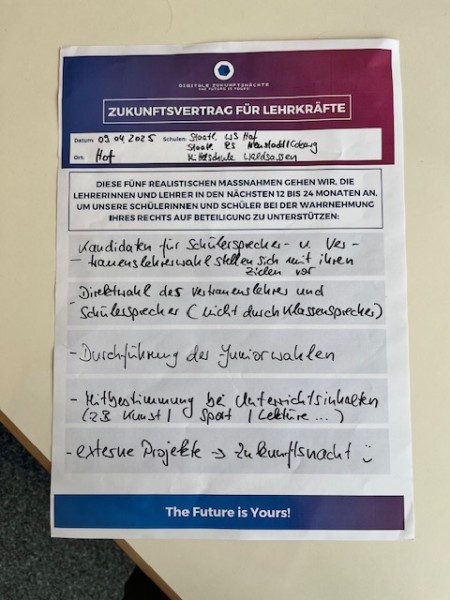 DIGITALE ZUKUNFTSNÄCHTE
THE FUTURE IS YOURS!
ZUKUNFTSVERTRAG FÜR LEHRKRÄFTE
Datum: 09.04.2025 Schulen: Staatl. WS Hof
Staatl. RS Neustadt/Coburg
Ort: Hof Mittelschule Waldsassen
DIESE FÜNF REALISTISCHEN MASSNAHMEN GEHEN WIR, DIE
LEHRERINNEN UND LEHRER IN DEN NÄCHSTEN 12 BIS 24 MONATEN AN,
UM UNSERE SCHÜLERINNEN UND SCHÜLER BEI DER WAHRNEHMUNG
IHRES RECHTS AUF BETEILIGUNG ZU UNTERSTÜTZEN:
Kandidaten für Schülersprecher- u. Ver-
- trauenslehrerwahl stellen sich mit ihren
Zielen vor
- Direktwahl des Vertrauenslehrer und
Schülersprecher (nicht durch Klassensprecher)
- Durchführung der Juniorwahlen
- Mitbestimmung bei Unterrichtsinhalten
(zB Kunst / Sport / Lektüre ...)
- externe Projekte → Zukunftsnacht :)
The Future is Yours!